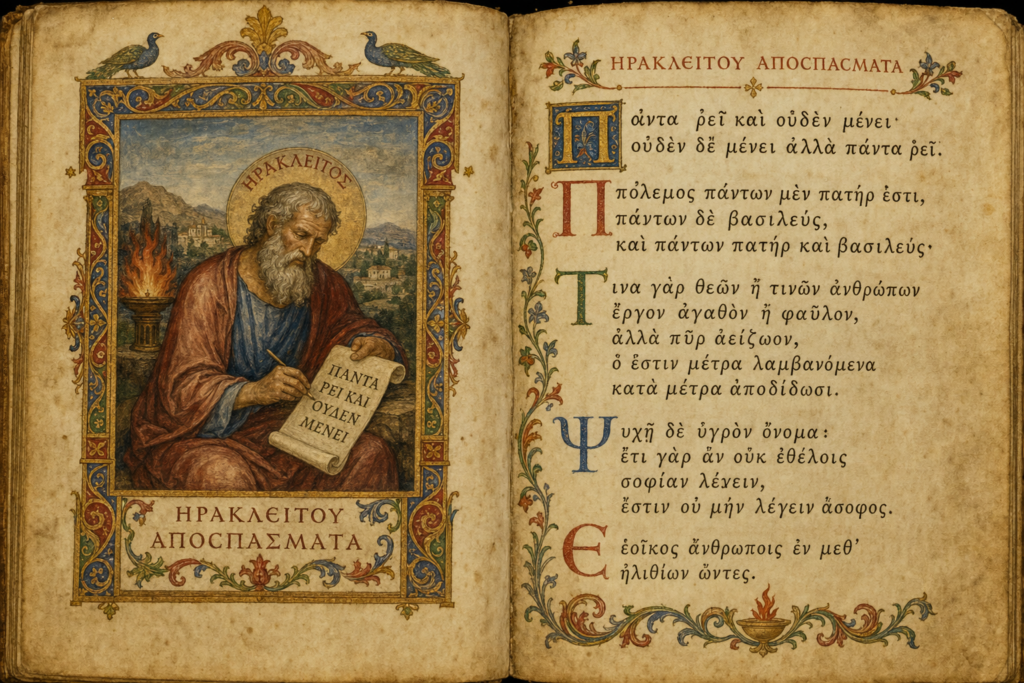 ΗΡΑΚΛΕΙΤΟΣ
ΠΑΝΤΑ
ΡΕΙ ΚΑΙ
ΟΥΔΕΝ
ΜΕΝΕΙ
ΗΡΑΚΛΕΙΤΟΥ
ΑΠΟϹΠΑΣΜΑΤΑ
ΗΡΑΚΛΕΙΤΟΥ ΑΠΟϹΠΑϹΜΑΤΑ
Πάντα ῥεῖ καὶ οὐδὲν μένει·
οὐδὲν δὲ μένει ἀλλὰ πάντα ῥεῖ.
Ππόλεμος πάντων μὲν πατήρ ἐστι,
πάντων δὲ βασιλεύς,
καὶ πάντων πατήρ καὶ βασιλεύς·
Τινα γὰρ θεῶν ἤ τινῶν ἀνθρώπων
ἔργον ἀγαθὸν ἤ φαῦλον,
ἀλλὰ πῦρ ἀείζωον,
ὁ ἔστιν μέτρα λαμβανόμενα
κατὰ μέτρα ἀποδίδωσι.
Ψυχῇ δὲ ὑγρὸν ὄνομα:
ἔτι γὰρ ἂν οὐκ ἐθέλοις
σοφίαν λέγειν,
ἔστιν οὐ μήν λέγειν ἄσοφος.
Εἐοῖκος ἄνθρωποις ἐν μεθ’
ἠλιθίων ὤντες.